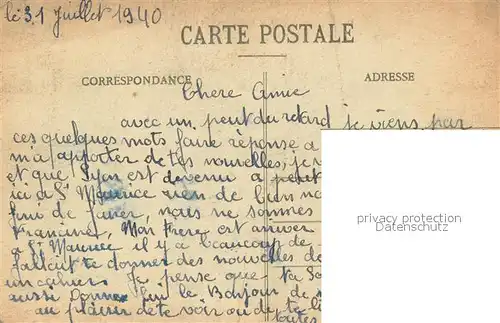 le 31 Juillet 1940
CARTE POSTALE
CORRESPONDANCE
ADRESSE
Chere Amie
avec un peut du retard je viens par
ces quelques mots faire réponse a
m'a apporter de tes nouvelles, je
et que Lyon est devenu a peut
ici a St Maurice rien de bien
fini de faner, nous ne sommes
Francine, Mon Frere est arriver
a St Maurice il y a beaucoup de
fallait te donner des nouvelles de
un cahier Je pense que ta
aussi Donne lui le Bonjour de
au plaisir de te voir ou de te li
toutes
privacy protection
Datenschutz